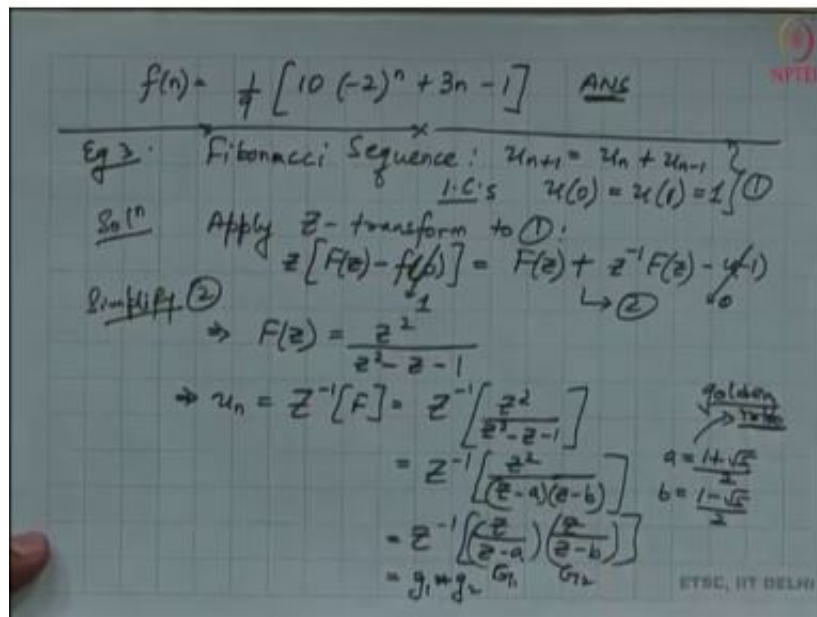 NPTEL
f(n) = 1/9 [10 (-2)^n + 3n - 1] ANS
Eg 3. Fibonacci Sequence: u_{n+1} = u_n + u_{n-1}
I.C.'s u(0) = u(1) = 1} ①
Solⁿ Apply Z-transform to ①:
z[F(z) - f(0)] = F(z) + z^{-1}F(z) - u(-1)
1 ↳ ② 0
Simplify ②
⇒ F(z) = z²/(z² - z - 1)
⇒ u_n = Z^{-1}[F] = Z^{-1}[z²/(z² - z - 1)]
golden ratio
= Z^{-1}[z²/((z-a)(z-b))] a = (1+√5)/2
b = (1-√5)/2
= Z^{-1}[(z/(z-a))(z/(z-b))]
= g₁ * g₂ G₁ G₂
ETSC, IIT DELHI